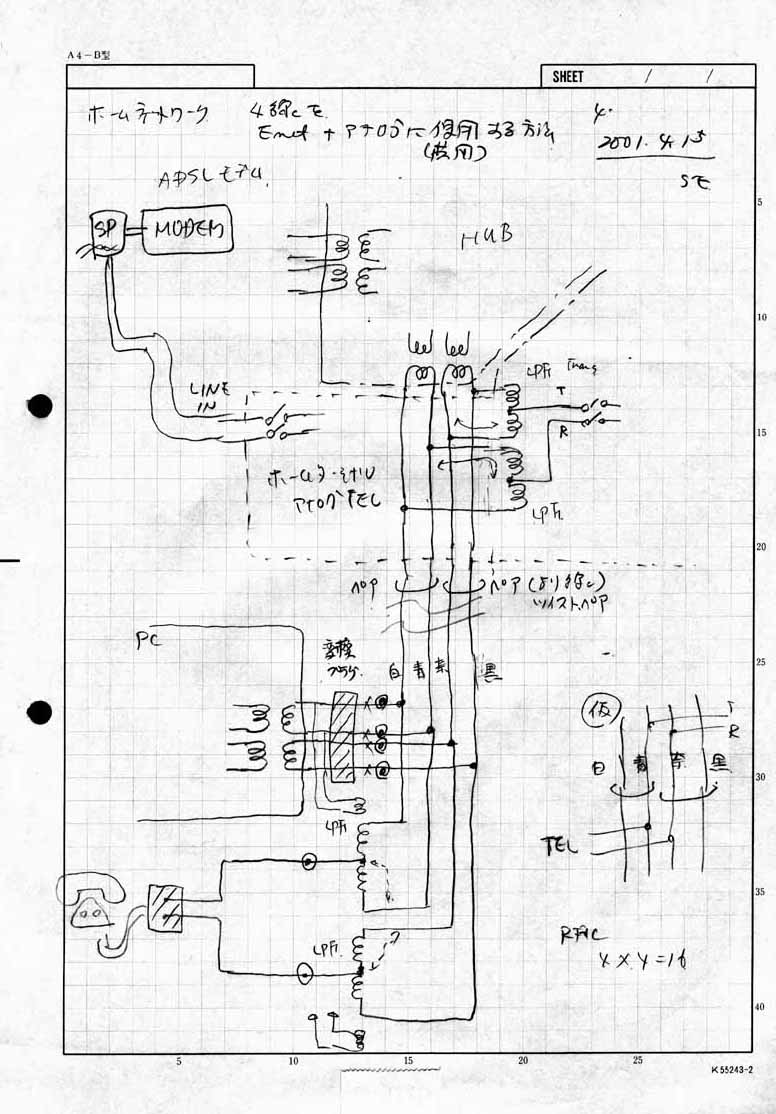 A4-B型
SHEET / /
ホームネットワーク 4線にて
Enet + アナログに使用する方法
(兼用)
2001. 4. 15
ADSLモデム
SP
MODEM
HUB
LPF
Trans
T
LINE
IN
R
ホームターミナル
アナログTEL
LPF
ペア
ペア (より線)
ツイストペア
PC
変換
プラグ
白 青 茶 黒
仮
T
R
白 青 茶 黒
LPF
TEL
LPF
4 X 4 = 16
5
10
15
20
25
30
35
40
5 10 15 20 25
K55243-2